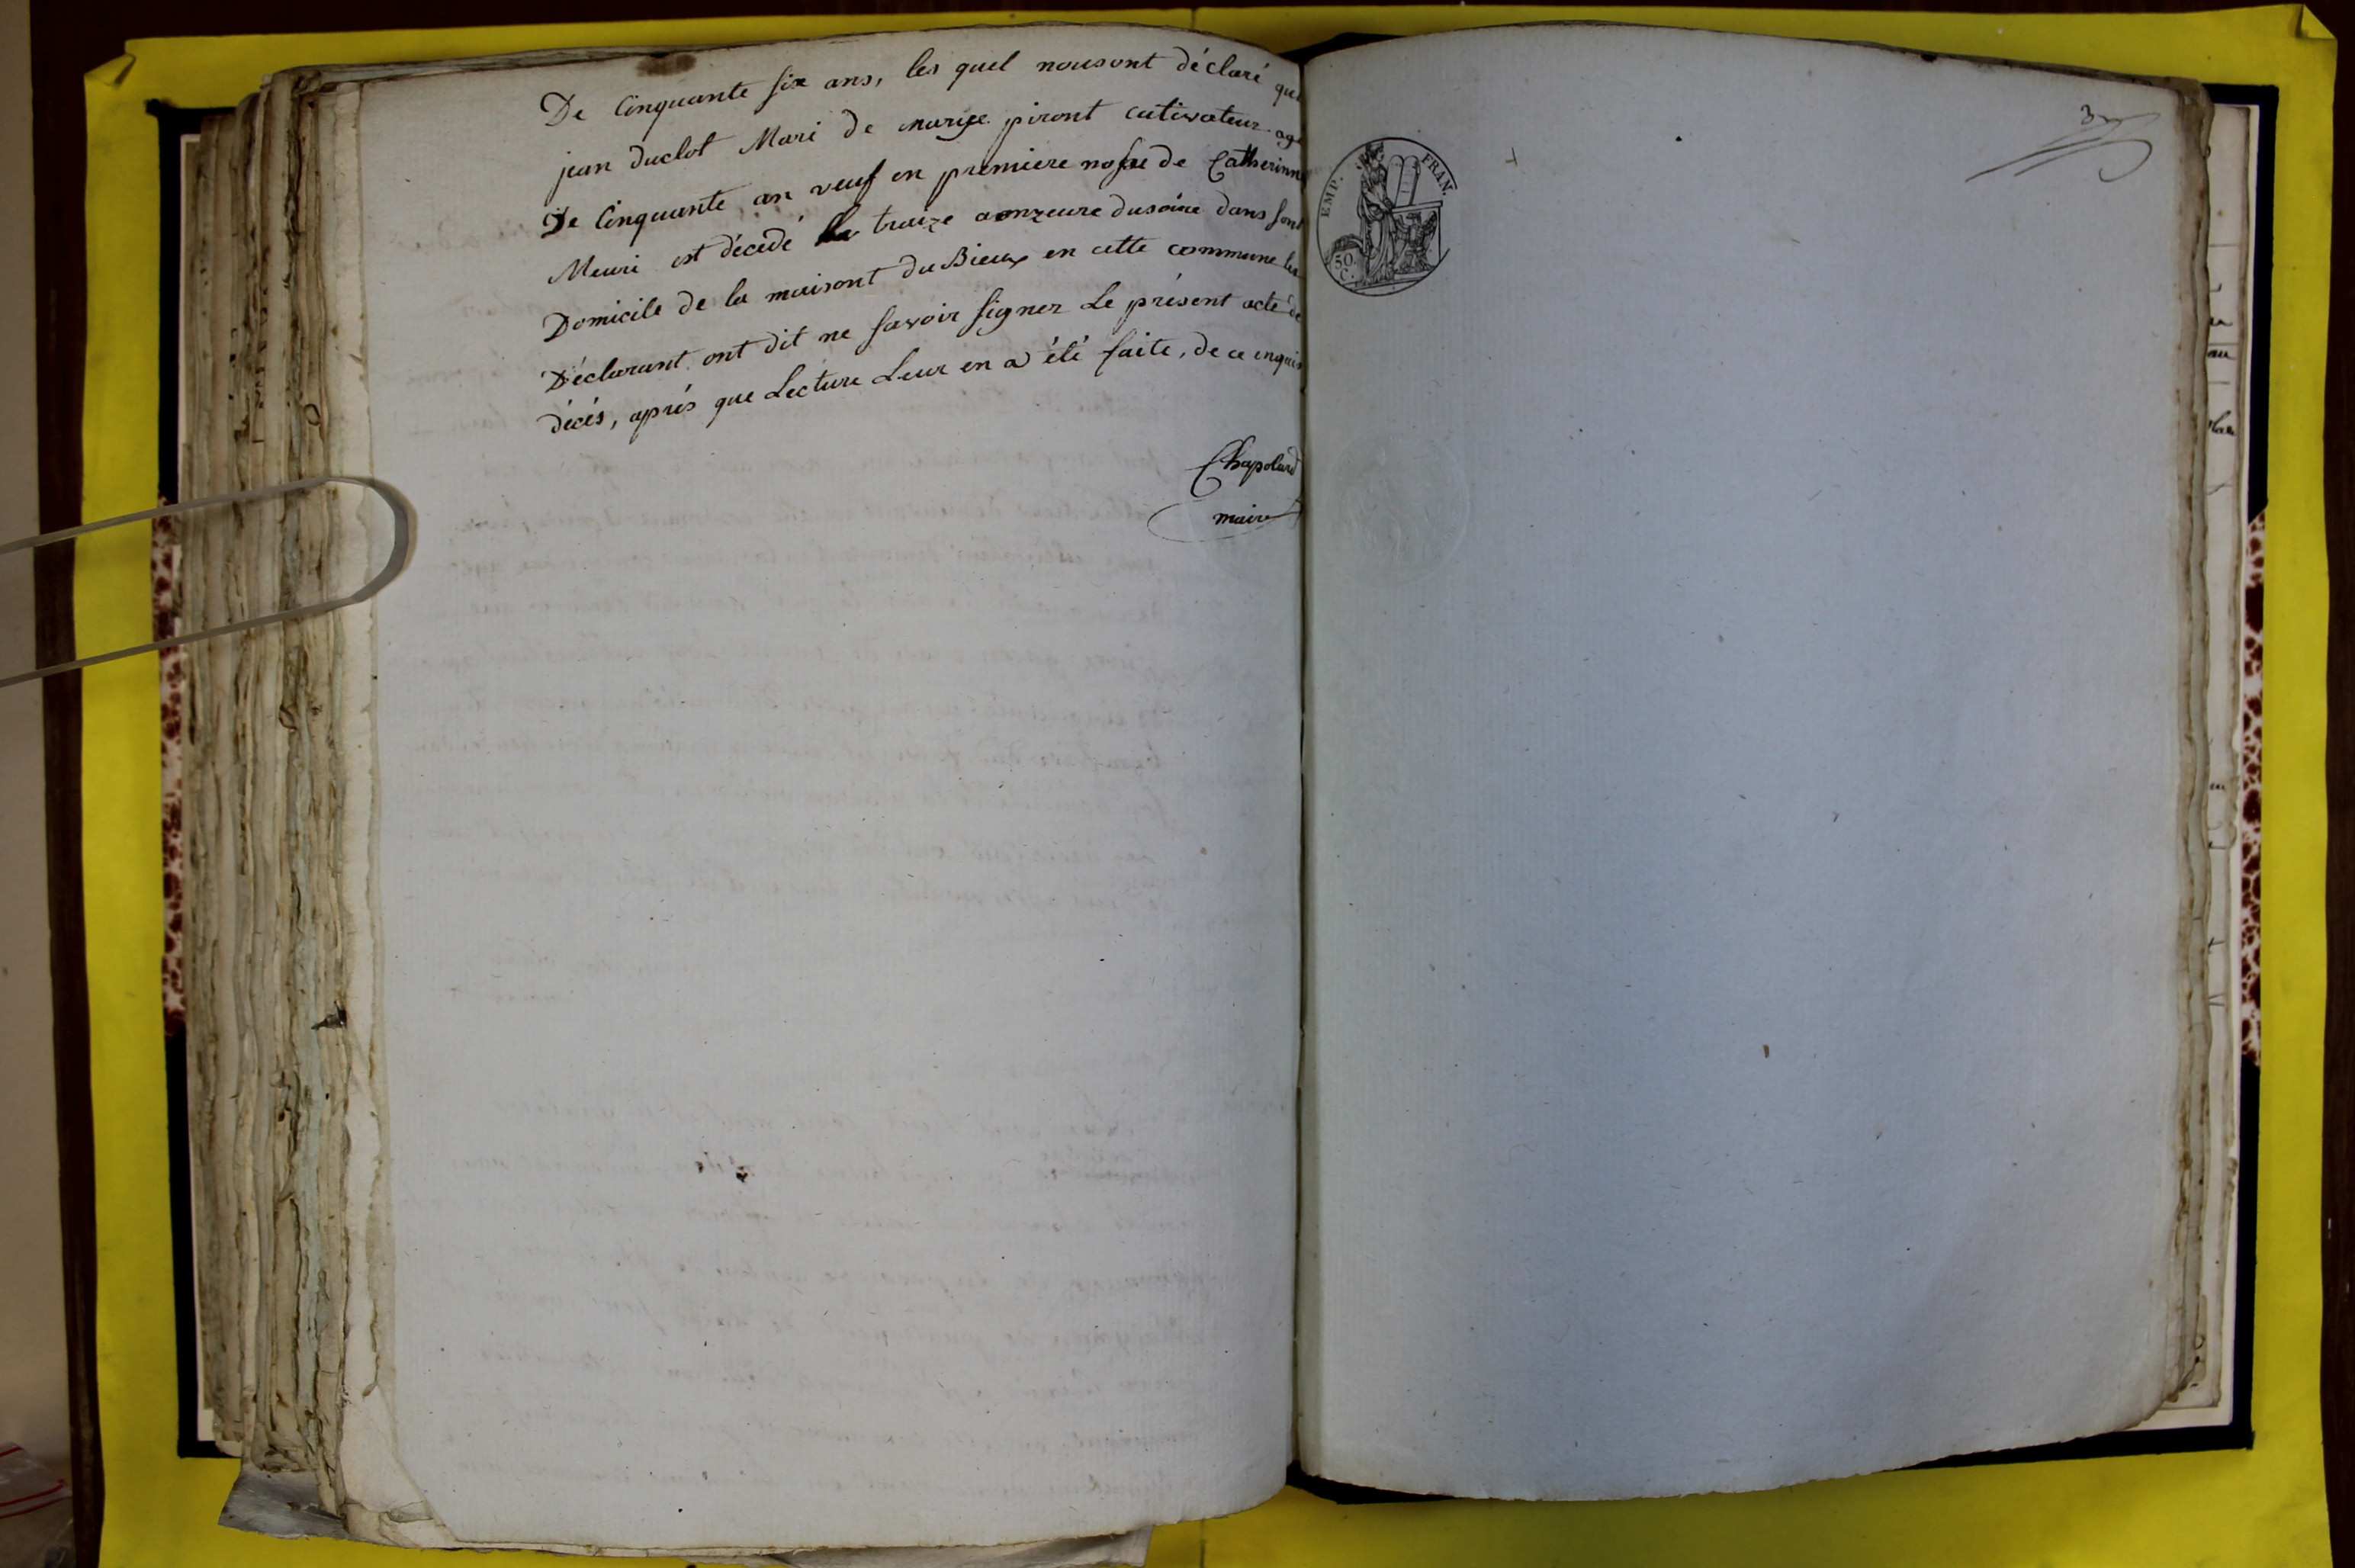 De Cinquante six ans, les quel nousont déclaré que
jean duclot Mari de marije piront cutivateur agé
De Cinquante an veuf en premiere nosse de Catherinne
Meuri est décedé le traize aonzeure dusoire dans sont
Domicile de la maisont du Bieux en cette commune les
Déclarant ont dit ne savoir signer Le présent acte de
décés, aprés que Lecture Leur en a été faite, de ce enquis
Chapolard
maire
EMP. FRAN.
50
C.
3